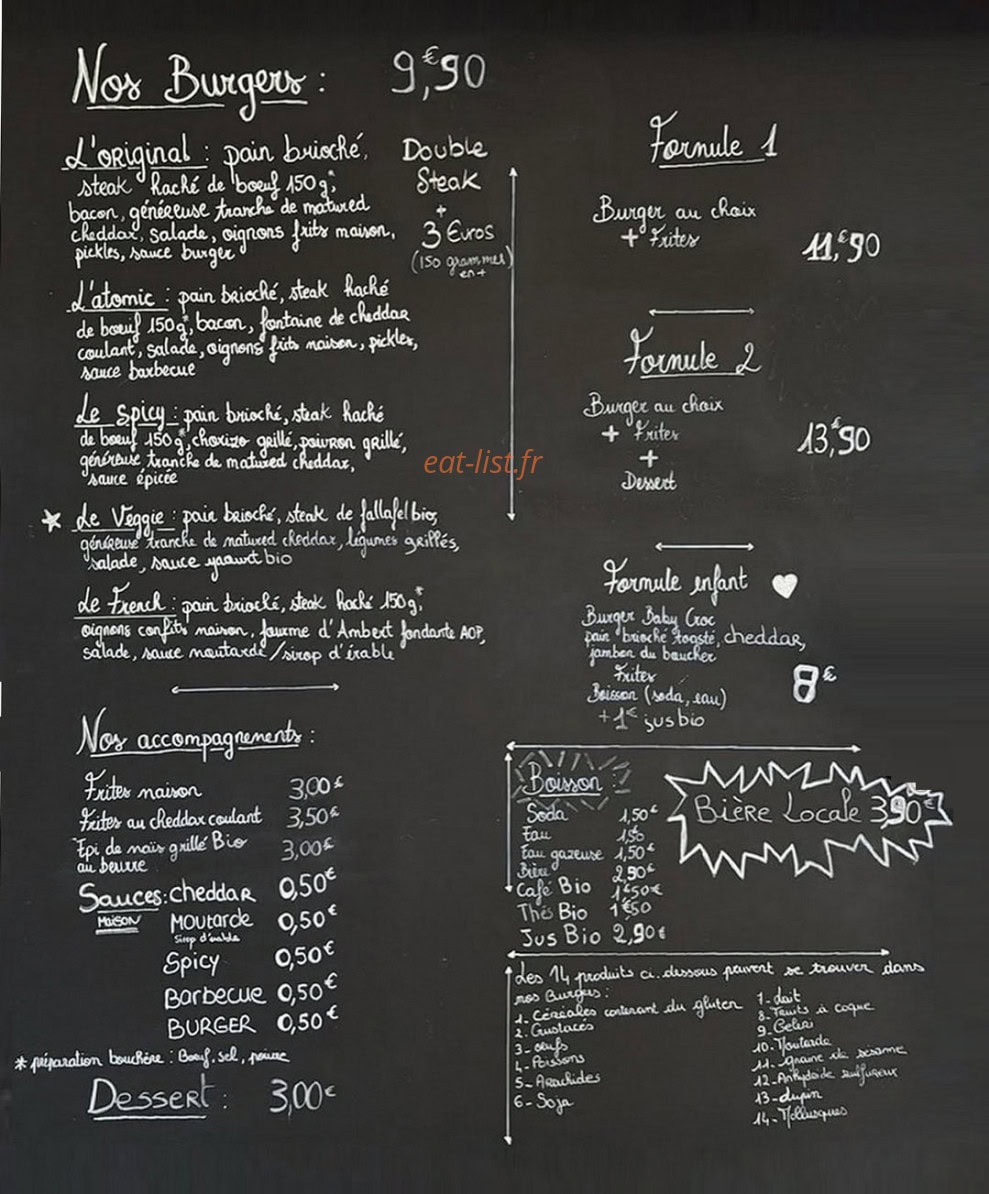 Nos Burgers : 9,€90
L'original : pain brioché,
steak haché de boeuf 150g*,
bacon, généreuse tranche de matured
cheddar, salade, oignons frits maison,
pickles, sauce burger
Double
Steak
+
3 Euros
(150 grammes
en +
L'atomic : pain brioché, steak haché
de boeuf 150g*, bacon, fontaine de cheddar
coulant, salade, oignons frits maison, pickles,
sauce barbecue
Le Spicy : pain brioché, steak haché
de boeuf 150g*, chorizo grillé, poivron grillé,
généreuse tranche de matured cheddar,
sauce épicée
Le Veggie : pain brioché, steak de fallafel bio,
généreuse tranche de matured cheddar, légumes grillés,
salade, sauce yaourt bio
Le French : pain brioché, steak haché 150g*,
oignons confits maison, fourme d'Ambert fondante AOP,
salade, sauce moutarde/sirop d'érable
Nos accompagnements :
Frites maison 3,00€
Frites au cheddar coulant 3,50€
Epi de maïs grillé Bio 3,00€
au beurre
Sauces: cheddar 0,50€
Maison Moutarde 0,50€
Sirop d'érable
Spicy 0,50€
Barbecue 0,50€
BURGER 0,50€
* préparation bouchère : Boeuf, sel, poivre
Dessert : 3,00€
Formule 1
Burger au choix
+ Frites
11,€90
Formule 2
Burger au choix
+ Frites
+
Dessert
13,€90
Formule enfant
Burger Baby Croc
pain brioché toasté, cheddar,
jambon du boucher
Frites
Boisson (soda, eau)
+1€ jus bio
8€
Boisson
Soda 1,50€
Eau 1,50
Eau gazeuse 1,50€
Bière 2,90€
Café Bio 1€50€
Thés Bio 1€50
Jus Bio 2,90€
Bière Locale 3,90€
Les 14 produits ci.dessous peuvent se trouver dans
nos Burgers :
1- Céréales contenant du gluten
2- Crustacés
3- oeufs
4- Poissons
5- Arachides
6- Soja
7- Lait
8- Fruits à coque
9- Céleri
10- Moutarde
11- graine de sésame
12- Anhydride sulfureux
13- Lupin
14- Mollusques
eat-list.fr